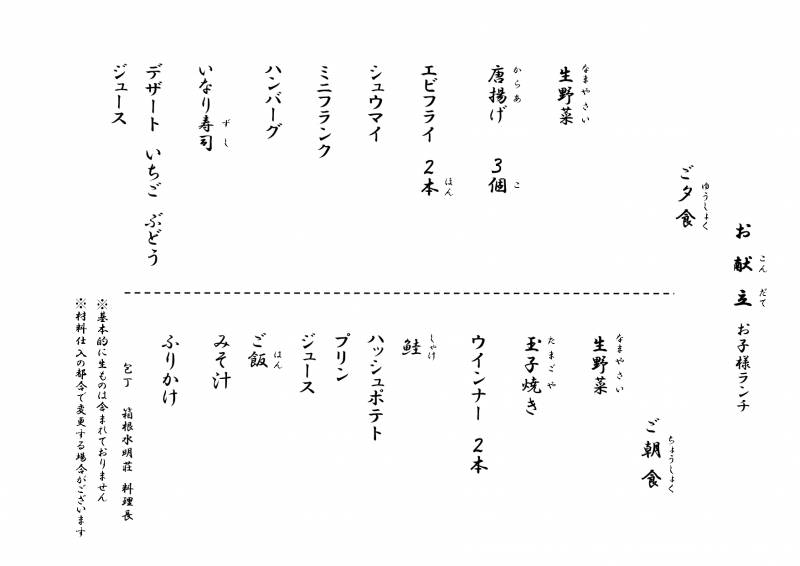 お献立 お子様ランチ
こんだて
ご夕食
ゆうしょく
生野菜
なまやさい
唐揚げ 3個
からあ こ
エビフライ 2本
ほん
シュウマイ
ミニフランク
ハンバーグ
いなり寿司
ずし
デザート いちご ぶどう
ジュース
ご朝食
ちょうしょく
生野菜
なまやさい
玉子焼き
たまごや
ウインナー 2本
鮭
しゃけ
ハッシュポテト
プリン
ジュース
ご飯
はん
みそ汁
ふりかけ
包丁 箱根水明荘 料理長
※基本的に生ものは含まれておりません
※材料仕入の都合で変更する場合がございます